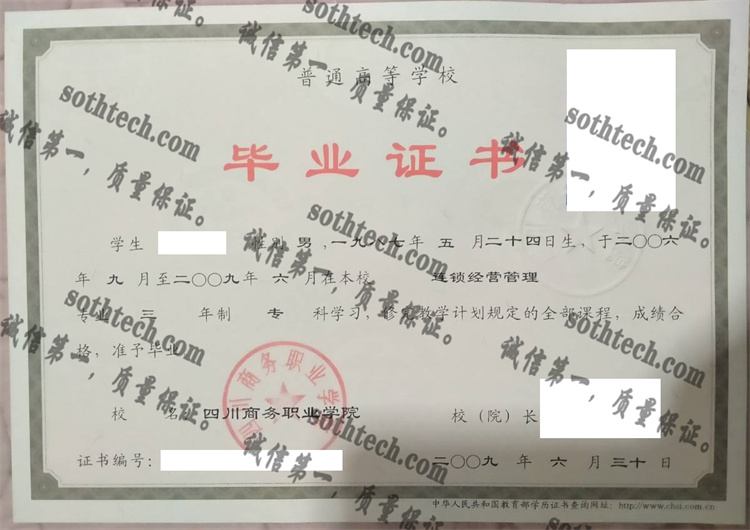 普通高等学校
毕业证书
学生 性别 男 ,一九八七年 五 月二十四日生, 于二〇〇六
年 九 月至二〇〇九年 六 月在本校 连锁经营管理
专业 三 年制 专 科学习, 修完教学计划规定的全部课程, 成绩合
格, 准予毕业
校 名: 四川商务职业学院 校(院)长
证书编号: 二〇〇九 年 六 月 三十 日
中华人民共和国教育部学历证书查询网址: http://www.chsi.com.cn
四川商务职业学院
sothtech.com
诚信第一，质量保证。
sothtech.com
诚信第一，质量保证。
sothtech.com
诚信第一，质量保证。
sothtech.com
诚信第一，质量保证。
sothtech.com
诚信第一，质量保证。
sothtech.com
诚信第一，质量保证。
sothtech.com
诚信第一，质量保证。
sothtech.com
诚信第一，质量保证。